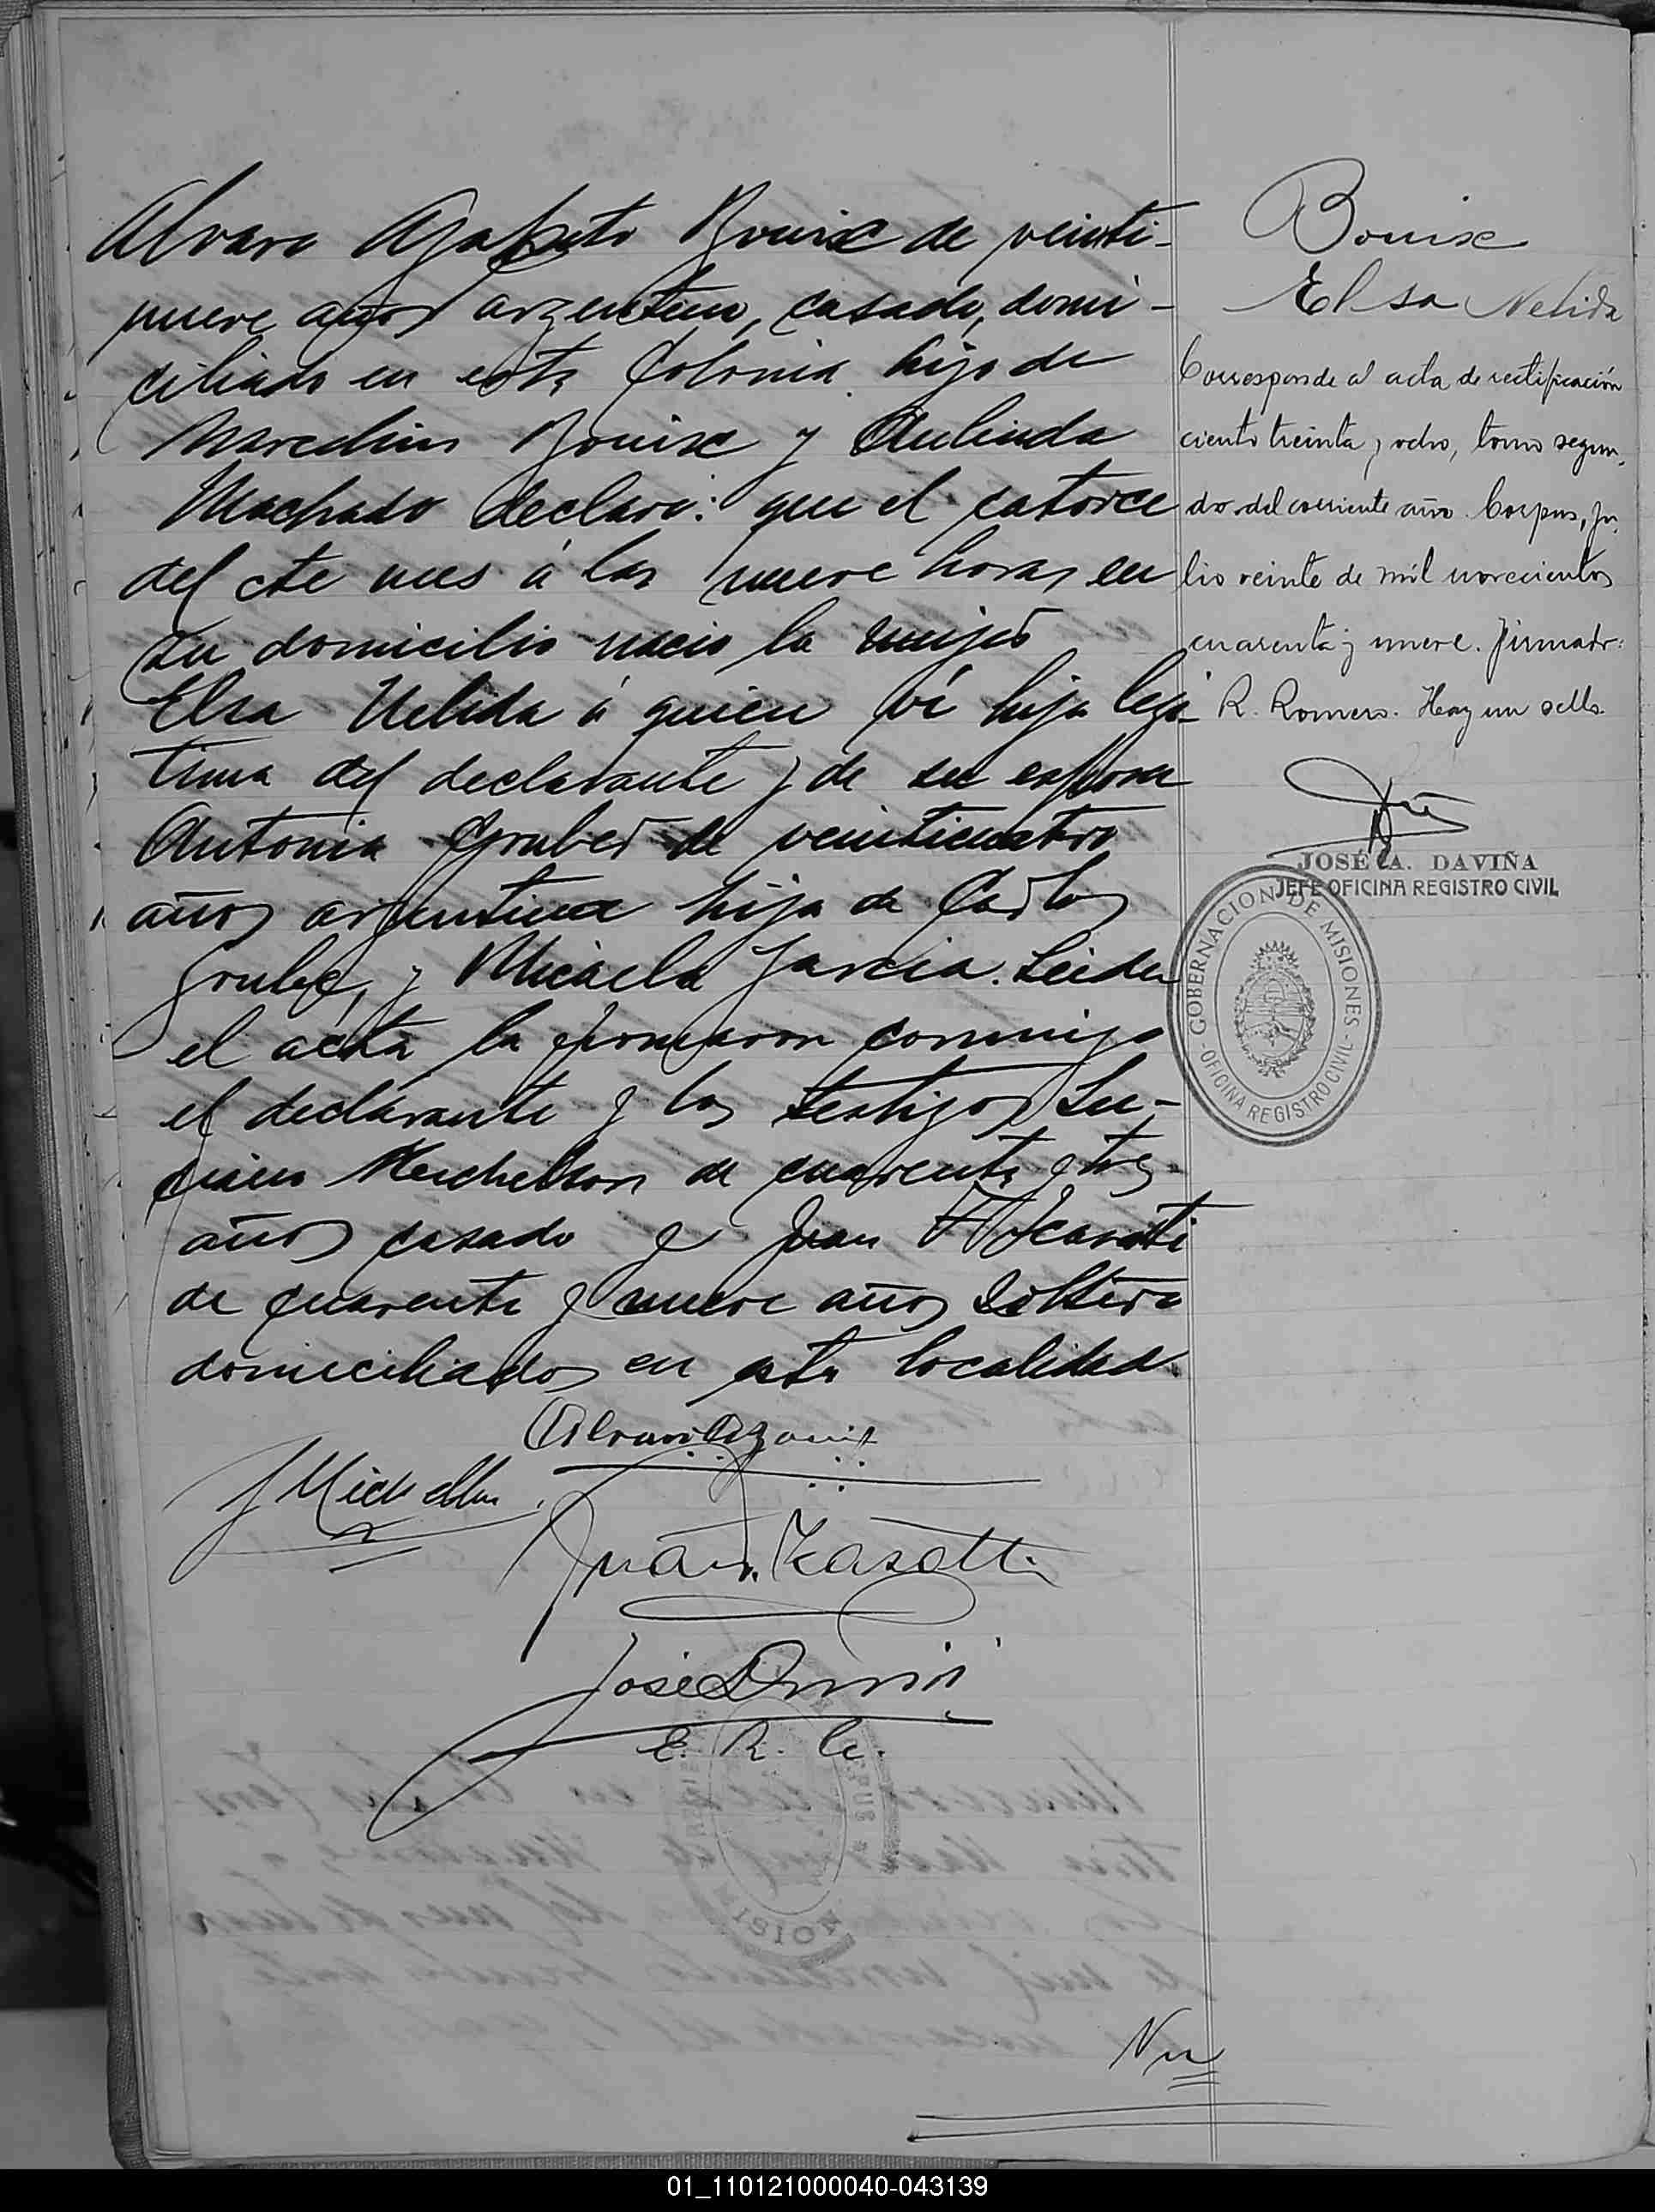 Alvaro Agapito Bouix de veinti-
nueve años argentino, casado, domi-
ciliado en esta Colonia hijo de
Marcelino Bouix y Aulinda
Machado declaró: que el catorce
del cte mes á las nueve horas en
su domicilio nació la mujer
Elsa Nelida á quien ví hija legi-
tima del declarante y de su esposa
Antonia Gruber de veinticuatro
años argentina hija de Carlos
Gruber y Micaela Garcia. Leida
el acta la firmaron conmigo
el declarante y los testigos Lu-
ciano de cuarenta y tres
años casado y Juan
de cuarenta y nueve años soltero
domiciliados en esta localidad.
Juan
José
E. R. C.
Bouix
Elsa Nelida
Corresponde al acta de rectificación
ciento treinta y ocho, tomo segun-
do del corriente año. Corpus, Ju-
lio veinte de mil novecientos
cuarenta y nueve. Firmado:
R. Romero. Hay un sello.
JOSÉ A. DAVIÑA
JEFE OFICINA REGISTRO CIVIL
GOBERNACION DE MISIONES
OFICINA REGISTRO CIVIL
01_110121000040-043139